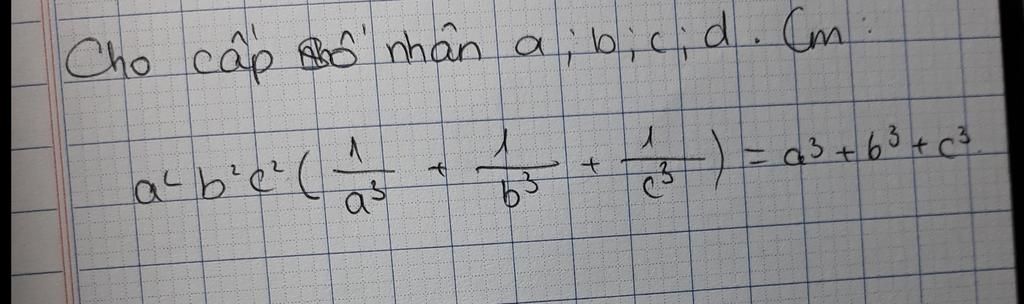 Cho cấp số nhân a; b; c; d. Cm:
a² b² c² ( 1/a³ + 1/b³ + 1/c³ ) = a³ + b³ + c³.